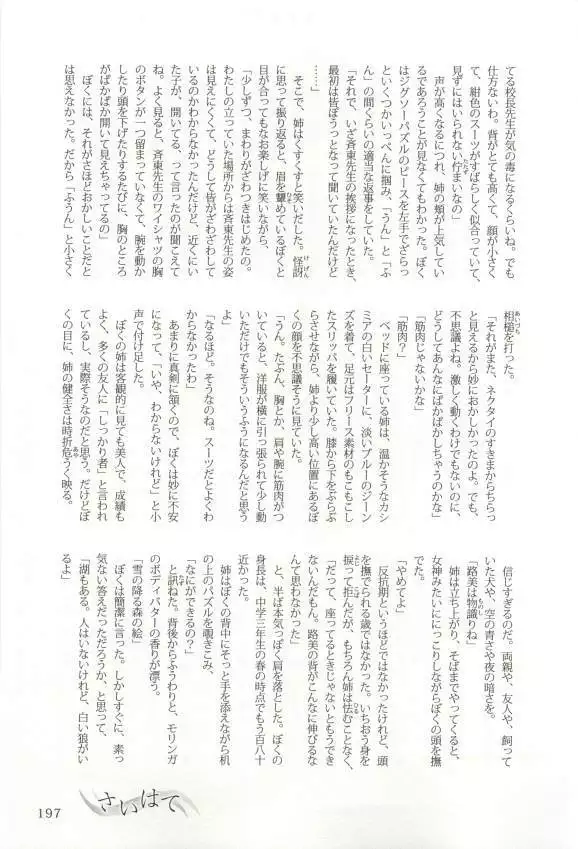 てる校長先生が気の毒になるくらいね。でも
仕方ないわ。背がとても高くて、顔が小さく
て、紺色のスーツがすばらしく似合っていて、
見ずにはいられない佇まいなの」
声が高くなるにつれ、姉の頬が上気してい
るであろうことが見なくてもわかった。ぼく
はジグソーパズルのピースを左手でざらっ
といくつかいっぺんに掴み、「うん」と「ふ
ん」の間くらいの適当な返事をしていた。
「それで、いざ斉東先生の挨拶になったとき、
最初は皆ぼうっとなって聞いていたんだけど
……」
そこで、姉はくすくすと笑いだした。怪訝
に思って振り返ると、眉を顰めているぼくと
目が合ってもなお楽しげに笑いながら、
「少しずつ、まわりがざわつきはじめたの。
わたしの立っていた場所からは斉東先生の姿
は見えにくくて、どうして皆がざわざわして
いるのかわからなかったんだけど、近くにい
た子が、開いてる、って言ったのが聞こえて
ね。よく見ると、斉東先生のワイシャツの胸
のボタンが一つ留まっていなくて、腕を動か
したり頭を下げたりするたびに、胸のところ
がぱかぱか開いて見えちゃってるの」
ぼくには、それがさほどおかしいことだと
は思えなかった。だから「ふうん」と小さく
相槌を打った。
「それがまた、ネクタイのすきまからちらっ
と見えるから妙におかしかったのよ。でも、
不思議よね。激しく動くわけでもないのに、
どうしてあんなにぱかぱかしちゃうのかな」
「筋肉じゃないかな」
「筋肉？」
ベッドに座っている姉は、温かそうなカシ
ミアの白いセーターに、淡いブルーのジーン
ズを着て、足元はフリース素材のもこもこし
たスリッパを履いていた。膝から下をぶらぶ
らさせながら、姉より少し高い位置にあるぼ
くの顔を不思議そうに見ていた。
「うん。たぶん、胸とか、肩や腕に筋肉がつ
いていると、洋服が横に引っ張られて少し動
いただけでもそういうふうになるんだと思う
よ」
「なるほど。そうなのね。スーツだとよくわ
からなかったわ」
あまりに真剣に頷くので、ぼくは妙に不安
になって、「いや、わからないけれど」と小
声で付け足した。
ぼくの姉は客観的に見ても美人で、成績も
よく、多くの友人に「しっかり者」と言われ
ているし、実際そうなのだと思う。だけどぼ
くの目に、姉の健全さは時折危うく映る。
信じすぎるのだ。両親や、友人や、飼って
いた犬や、空の青さや夜の暗さを。
「路美は物識りね」
姉は立ち上がり、そばまでやってくると、
女神みたいににっこりしながらぼくの頭を撫
でた。
「やめてよ」
反抗期というほどではなかったけれど、頭
を撫でられる歳ではなかった。いちおう身を
捩って拒んだが、もちろん姉は怯むことなく、
「だって、座ってるときじゃないともうでき
ないんだもん。路美の背がこんなに伸びるな
んて思わなかった」
と、半ば本気っぽく肩を落とした。ぼくの
身長は、中学三年生の春の時点でもう百八十
近かった。
姉はぼくの背中にそっと手を添えながら机
の上のパズルを覗きこみ、
「なにができるの？」
と訊ねた。背後からふうわりと、モリンガ
のボディバターの香りが漂う。
「雪の降る森の絵」
ぼくは簡潔に言った。しかしすぐに、素っ
気ない答えだっただろうか、と思って、
「湖もある。人はいないけれど、白い狼がい
るよ」
さいはて
197